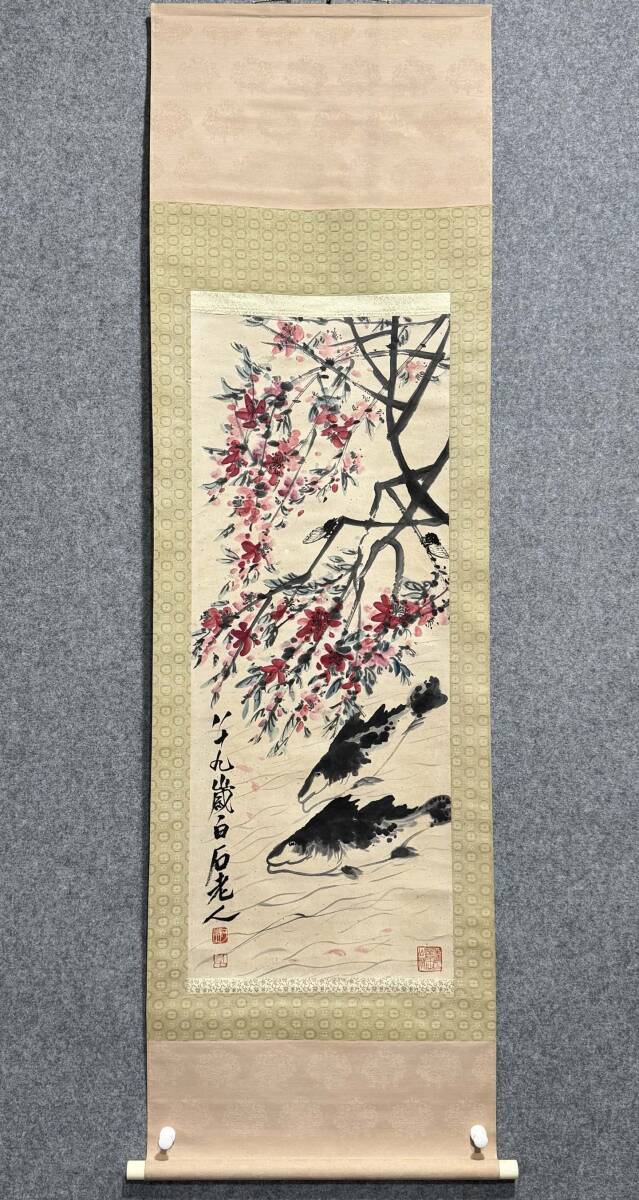 八十九歲白石老人